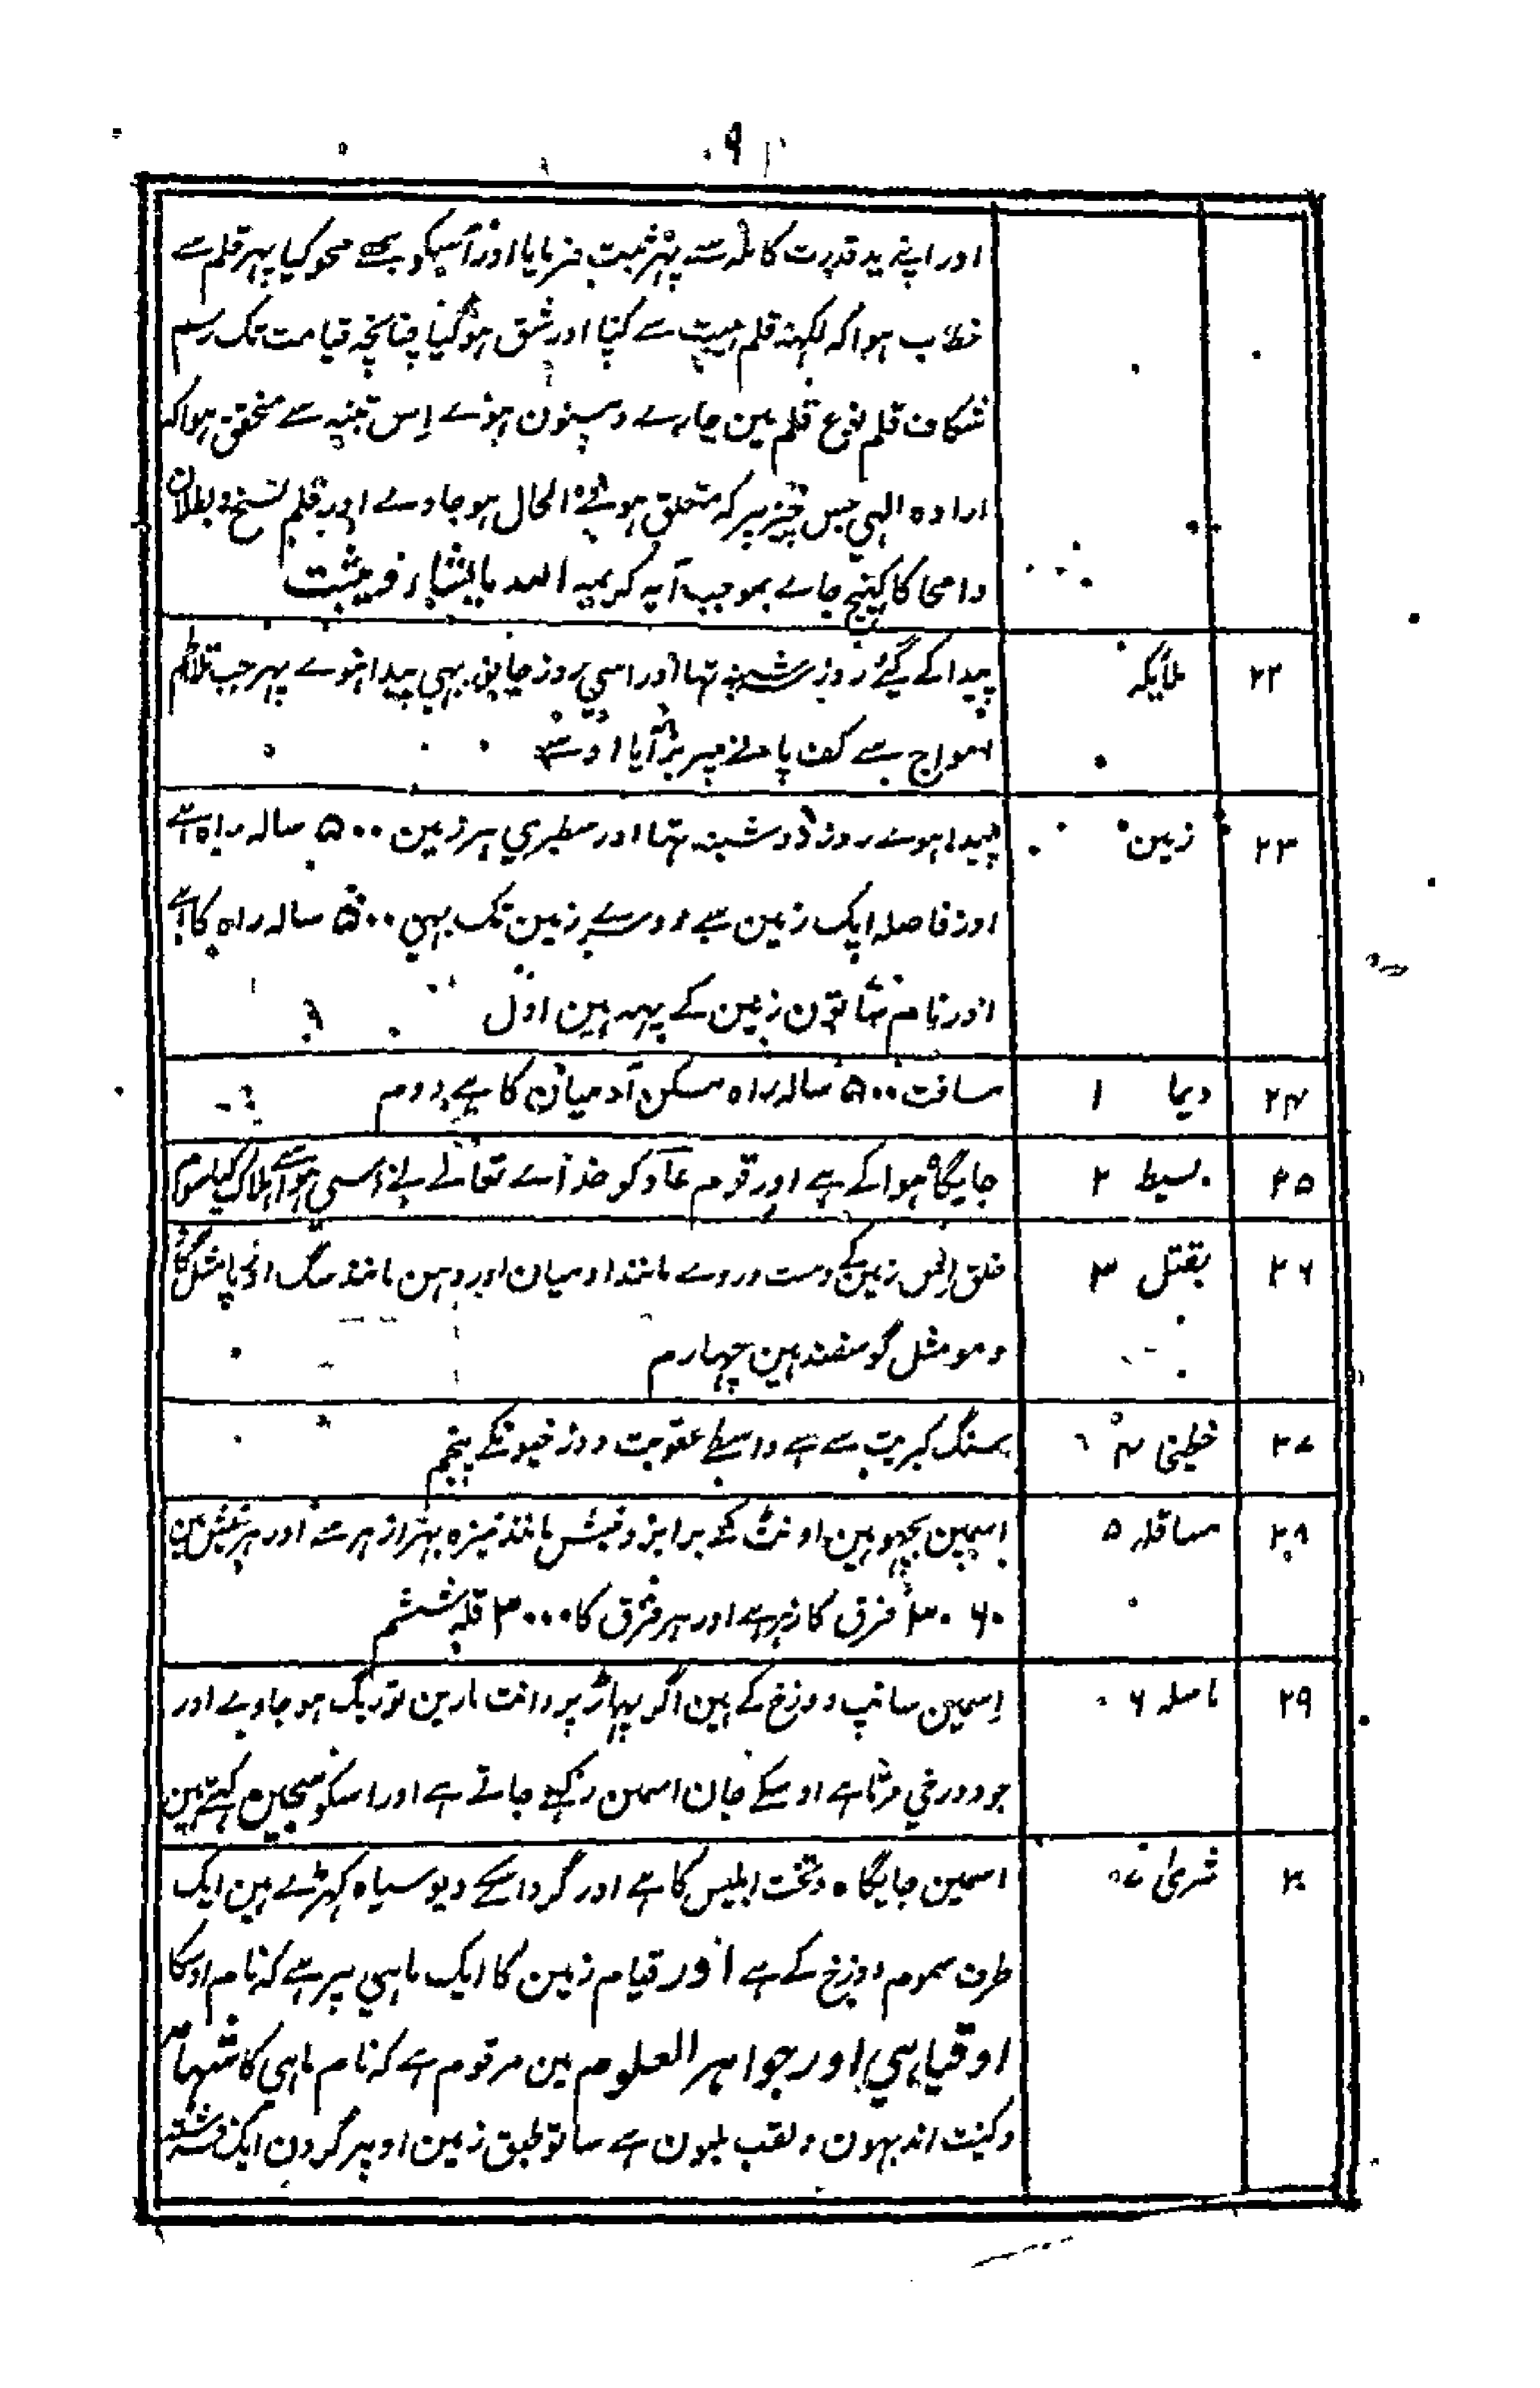 ۹
اور اپنے ید قدرت کاملہ سے پہر ثبت فرمایا اور آسکو بھے محو کیا پہر قلم سے
خطاب ہوا کہ لکہنہ قلم ہیبت سے کنپا اور شق ہوگیا چنانچہ قیامت تک رسم
شکاف قلم نوع قلم مین جارے و مسنون ہوئے اِس تنبیہ سے متحقق ہوا کہ
ارادہ الہی جس چیز پر کہ متعلق ہو فی الحال ہو جاوے اور قلم نسخ و بطلان
و امحا کا کہنچ جاے بموجب آیہ کریمہ اللہ ما یشاء و یثبت
۲۲ ملایکہ پیدا کے گیے روز شنبہ تہا اور اسی روز جانور بہی پیدا ہوے پہر جب تلاطم
امواج سے کف پانے پر بر آیا اوسے
۲۳ زمین پیدا ہوے روز دوشنبہ تہا اور سطبری ہر زمین ۵۰۰ سالہ راہ ہے
اور فاصلہ ایک زمین سے دوسرے زمین تک بہی ۵۰۰ سالہ راہ کا ہے
اور نام ساتون زمین کے یہہ ہین اول
۲۴ دیما ۱ مسافت ۵۰۰ سالہ راہ مسکن آدمیان کا ہے دوم
۲۵ بسیط ۲ جایگاہ ہوا کے ہے اور قوم عاد کو خداے تعالے نے اسی ہوا سے ہلاک کیا سوم
۲۶ بقتل ۳ خلق اِس زمین کے دست و روے مانند ادمیان اور دہن مانند سگ اور پا مثل گاو
و مو مثل گوسفند ہین چہارم
۲۷ خطینی ۴ سنگ کبریت سے ہے واسطے عقوبت دوزخیونکے پنجم
۲۸ ساقلہ ۵ اِسمین بچہو ہین اونٹ کے برابر و نیش مانند نیزہ بہر از ہر سے اور ہر نیش مین
۳۰۶۰ فرق کا زہر ہے اور ہر فرق کا ۳۰۰۰ قلہ ششم
۲۹ ماصلہ ۶ اِسمین سانپ دوزخ کے ہین اگر پہاڑ پر دانت مارین تو ریگ ہو جاوے اور
جو دوزخی مرتا ہے اوسکے جان اسمین رکہے جاتے ہے اور اسکو سجین کہتے ہین
۳۰ ثری ۷ اسمین جایگاہ و تخت ابلیس کا ہے اور گرد اسکے دیو سیاہ کہڑے ہین ایک
طرف سموم دوزخ کے ہے اور قیام زمین کا ایک ماہی پر ہے کہ نام اوسکا
اوقیا ہی اور جواہر العلوم مین مرقوم ہے کہ نام ماہی کا شہات
و کنیت اند بہون و لقب بلہون ہے ساتو طبق زمین اوپر گردن ایک فرشتہ